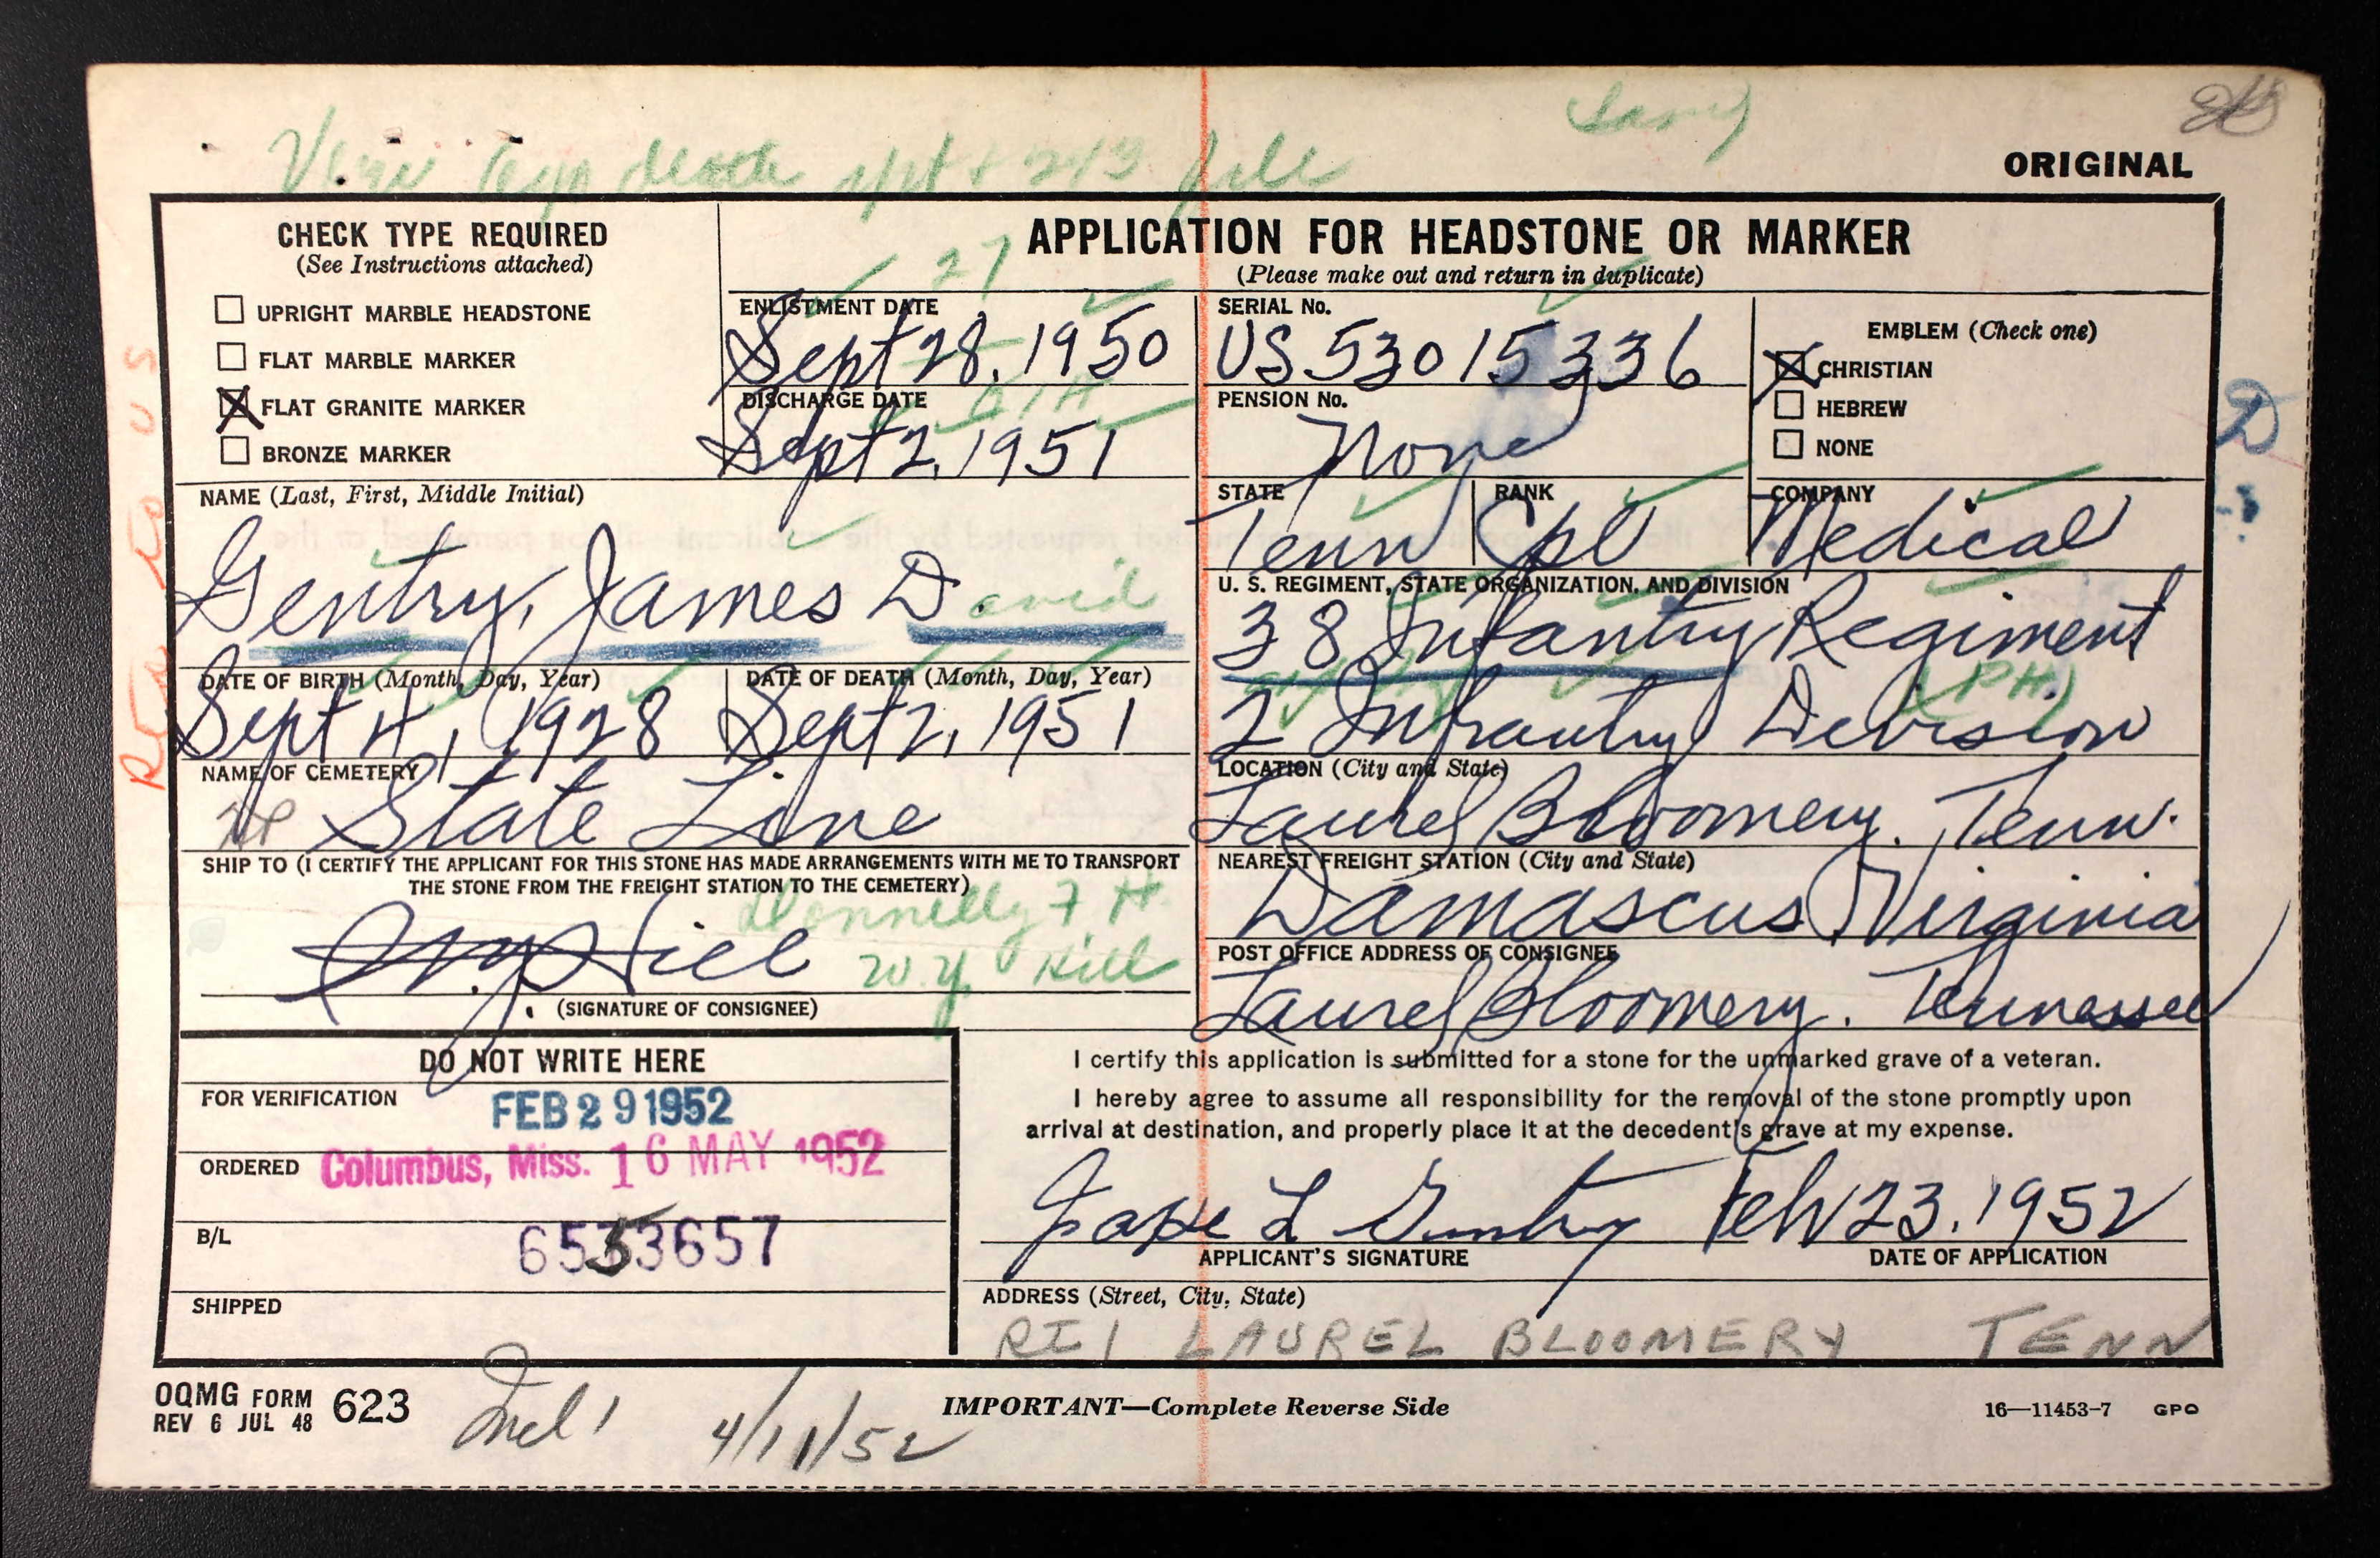 ORIGINAL
CHECK TYPE REQUIRED
(See Instructions attached)
UPRIGHT MARBLE HEADSTONE
FLAT MARBLE MARKER
FLAT GRANITE MARKER
BRONZE MARKER
APPLICATION FOR HEADSTONE OR MARKER
(Please make out and return in duplicate)
27
ENLISTMENT DATE
Sept 28, 1950
DISCHARGE DATE
Sept 2, 1951
SERIAL No.
US 53015336
PENSION No.
None
EMBLEM (Check one)
CHRISTIAN
HEBREW
NONE
D
NAME (Last, First, Middle Initial)
Gentry, James David
STATE
Tenn
RANK
Cpl
COMPANY
Medical
U. S. REGIMENT, STATE ORGANIZATION, AND DIVISION
38 Infantry Regiment
(PH)
2 Infantry Division
DATE OF BIRTH (Month, Day, Year)
Sept 4, 1928
DATE OF DEATH (Month, Day, Year)
Sept 2, 1951
NAME OF CEMETERY
State Line
LOCATION (City and State)
Laurel Bloomery. Tenn.
SHIP TO (I CERTIFY THE APPLICANT FOR THIS STONE HAS MADE ARRANGEMENTS WITH ME TO TRANSPORT
THE STONE FROM THE FREIGHT STATION TO THE CEMETERY)
Donnelly F H
W.Y. Hill
W.Y. Hill
(SIGNATURE OF CONSIGNEE)
NEAREST FREIGHT STATION (City and State)
Damascus Virginia
POST OFFICE ADDRESS OF CONSIGNEE
Laurel Bloomery. Tennessee
DO NOT WRITE HERE
FOR VERIFICATION
FEB 29 1952
ORDERED
Columbus, Miss. 16 MAY 1952
B/L
6533657
SHIPPED
I certify this application is submitted for a stone for the unmarked grave of a veteran.
I hereby agree to assume all responsibility for the removal of the stone promptly upon
arrival at destination, and properly place it at the decedent's grave at my expense.
L Gentry Feb 23, 1952
APPLICANT'S SIGNATURE
DATE OF APPLICATION
ADDRESS (Street, City, State)
RT 1 LAUREL BLOOMERY TENN
OQMG FORM 623
REV 6 JUL 48
4/11/52
IMPORTANT—Complete Reverse Side
16—11453-7 GPO